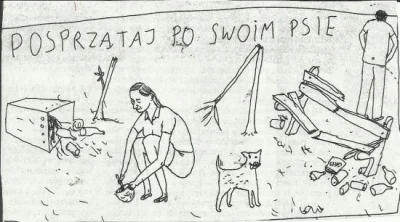 POSPRZĄTAJ PO SWOIM PSIE